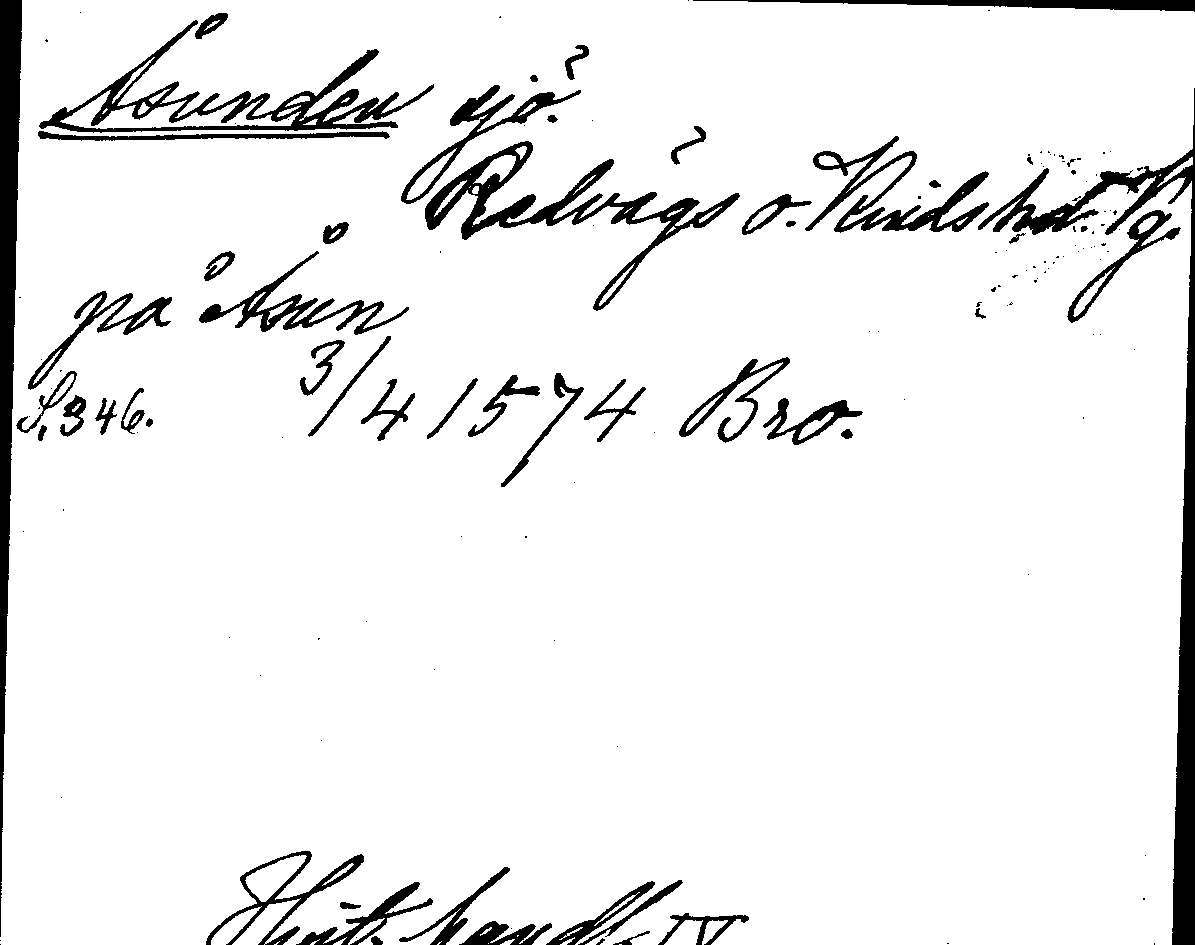 Åsunden sjö.
Redvägs o. Kinds hd. Vg.
på Åsun
S. 346. 3/4 1574 Bro.
Hist. handl. IV